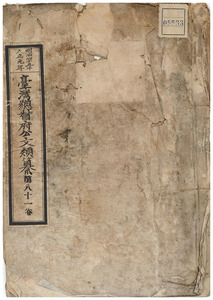 明治四十五年
大正元年
臺灣總督府公文類纂 第八十一卷
05533